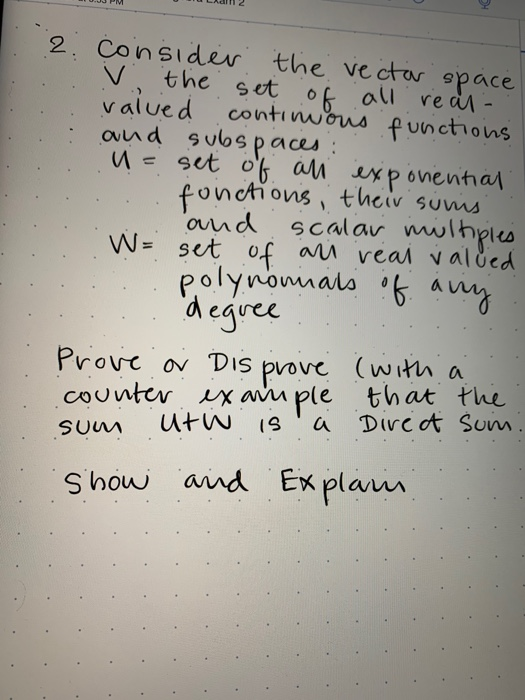 2. Consider the vector space
V, the set of all real-
valued continuous functions
and subspaces:
U = set of all exponential
fonctions, their sums
and scalar multiples
W = set of all real valued
polynomials of any
degree
Prove or Disprove (with a
counter example that the
sum U+W is a Direct Sum.
Show and Explain